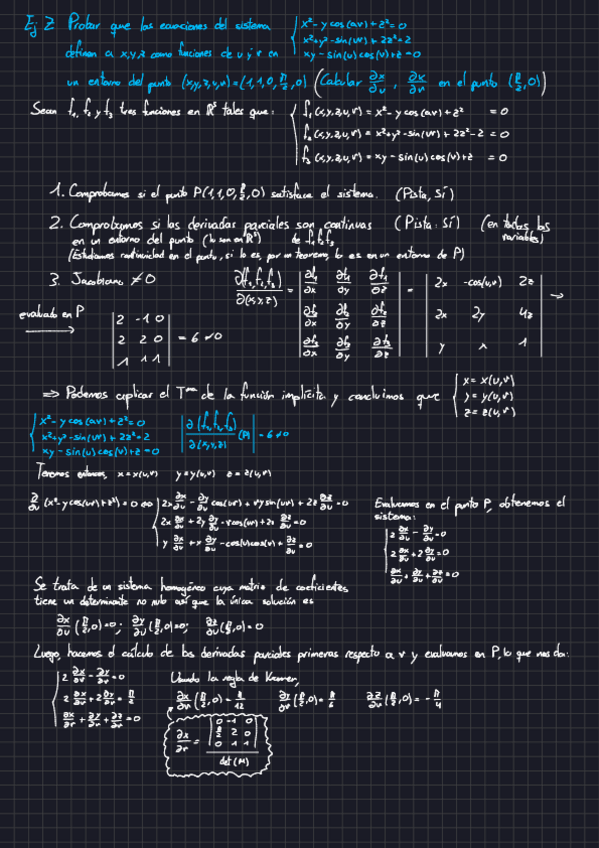 Ej 2 Probar que las ecuaciones del sistema { x² - y cos(uv) + z² = 0
x² + y² - sin(uv) + 2z² = 2
definen a x,y,z como funciones de u y v en xy - sin(u) cos(v) + z = 0
un entorno del punto (x,y,z,u,v) = (1,1,0,π/2,0) (Calcular ∂x/∂u, ∂x/∂v en el punto (π/2,0))
Sean f₁, f₂ y f₃ tres funciones en ℝ⁵ tales que: { f₁(x,y,z,u,v) = x² - y cos(uv) + z² = 0
f₂(x,y,z,u,v) = x² + y² - sin(uv) + 2z² - 2 = 0
f₃(x,y,z,u,v) = xy - sin(u) cos(v) + z = 0
1. Comprobamos si el punto P(1,1,0,π/2,0) satisface el sistema. (Pista, Sí)
2. Comprobamos si las derivadas parciales son continuas (Pista: Sí) (en todas las variables)
en un entorno del punto (lo son en ℝ⁵) de f₁,f₂,f₃
(Estudiamos continuidad en el punto, si lo es, por un teorema, lo es en un entorno de P)
3. Jacobiano ≠ 0 ∂(f₁,f₂,f₃)/∂(x,y,z) = | ∂f₁/∂x ∂f₁/∂y ∂f₁/∂z | = | 2x -cos(u,v) 2z | →
| ∂f₂/∂x ∂f₂/∂y ∂f₂/∂z | | 2x 2y 4z |
| ∂f₃/∂x ∂f₃/∂y ∂f₃/∂z | | y x 1 |
evaluado en P →
| 2 -1 0 |
| 2 2 0 | = 6 ≠ 0
| 1 1 1 |
⇒ Podemos aplicar el Tᵐᵃ de la función implícita y concluimos que { x = x(u,v)
y = y(u,v)
z = z(u,v)
{ x² - y cos(uv) + z² = 0
x² + y² - sin(uv) + 2z² = 2
xy - sin(u) cos(v) + z = 0
| ∂(f₁,f₂,f₃)/∂(x,y,z) (P) | = 6 ≠ 0
Tenemos entonces, x = x(u,v) y = y(u,v) z = z(u,v)
∂/∂u (x² - y cos(uv) + z²) = 0 ⇔ { 2x ∂x/∂u - ∂y/∂u cos(uv) + vy sin(uv) + 2z ∂z/∂u = 0
2x ∂x/∂u + 2y ∂y/∂u - v cos(uv) + 4z ∂z/∂u = 0
y ∂x/∂u + x ∂y/∂u - cos(u) cos(v) + ∂z/∂u = 0
Evaluamos en el punto P, obtenemos el
sistema:
{ 2 ∂x/∂u - ∂y/∂u = 0
2 ∂x/∂u + 2 ∂y/∂u = 0
∂x/∂u + ∂y/∂u + ∂z/∂u = 0
Se trata de un sistema homogéneo cuya matriz de coeficientes
tiene un determinante no nulo así que la única solución es
∂x/∂u (π/2,0) = 0; ∂y/∂u (π/2,0) = 0; ∂z/∂u (π/2,0) = 0
Luego, hacemos el cálculo de las derivadas parciales primeras respecto a v y evaluamos en P, lo que nos da:
{ 2 ∂x/∂v - ∂y/∂v = 0
2 ∂x/∂v + 2 ∂y/∂v = π/2
∂x/∂v + ∂y/∂v + ∂z/∂v = 0
Usando la regla de Kramer,
∂x/∂v (π/2,0) = π/12 ∂y/∂v (π/2,0) = π/6 ∂z/∂v (π/2,0) = -π/4
∂x/∂v = | 0 -1 0 |
| π/2 2 0 |
| 0 1 1 |
det(M)